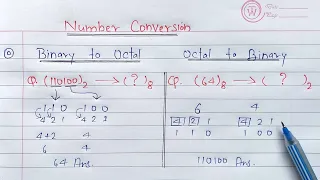 Number Conversion
Binary to Octal
Q. (110100)₂ → (?)₈
1 1 0 1 0 0
4 2 1 4 2 1
4+2 4
6 4
64 Ans.
Octal to Binary
Q. (64)₈ → ( ? )₂
6 4
4 2 1 4 2 1
1 1 0 1 0 0
110100 Ans.